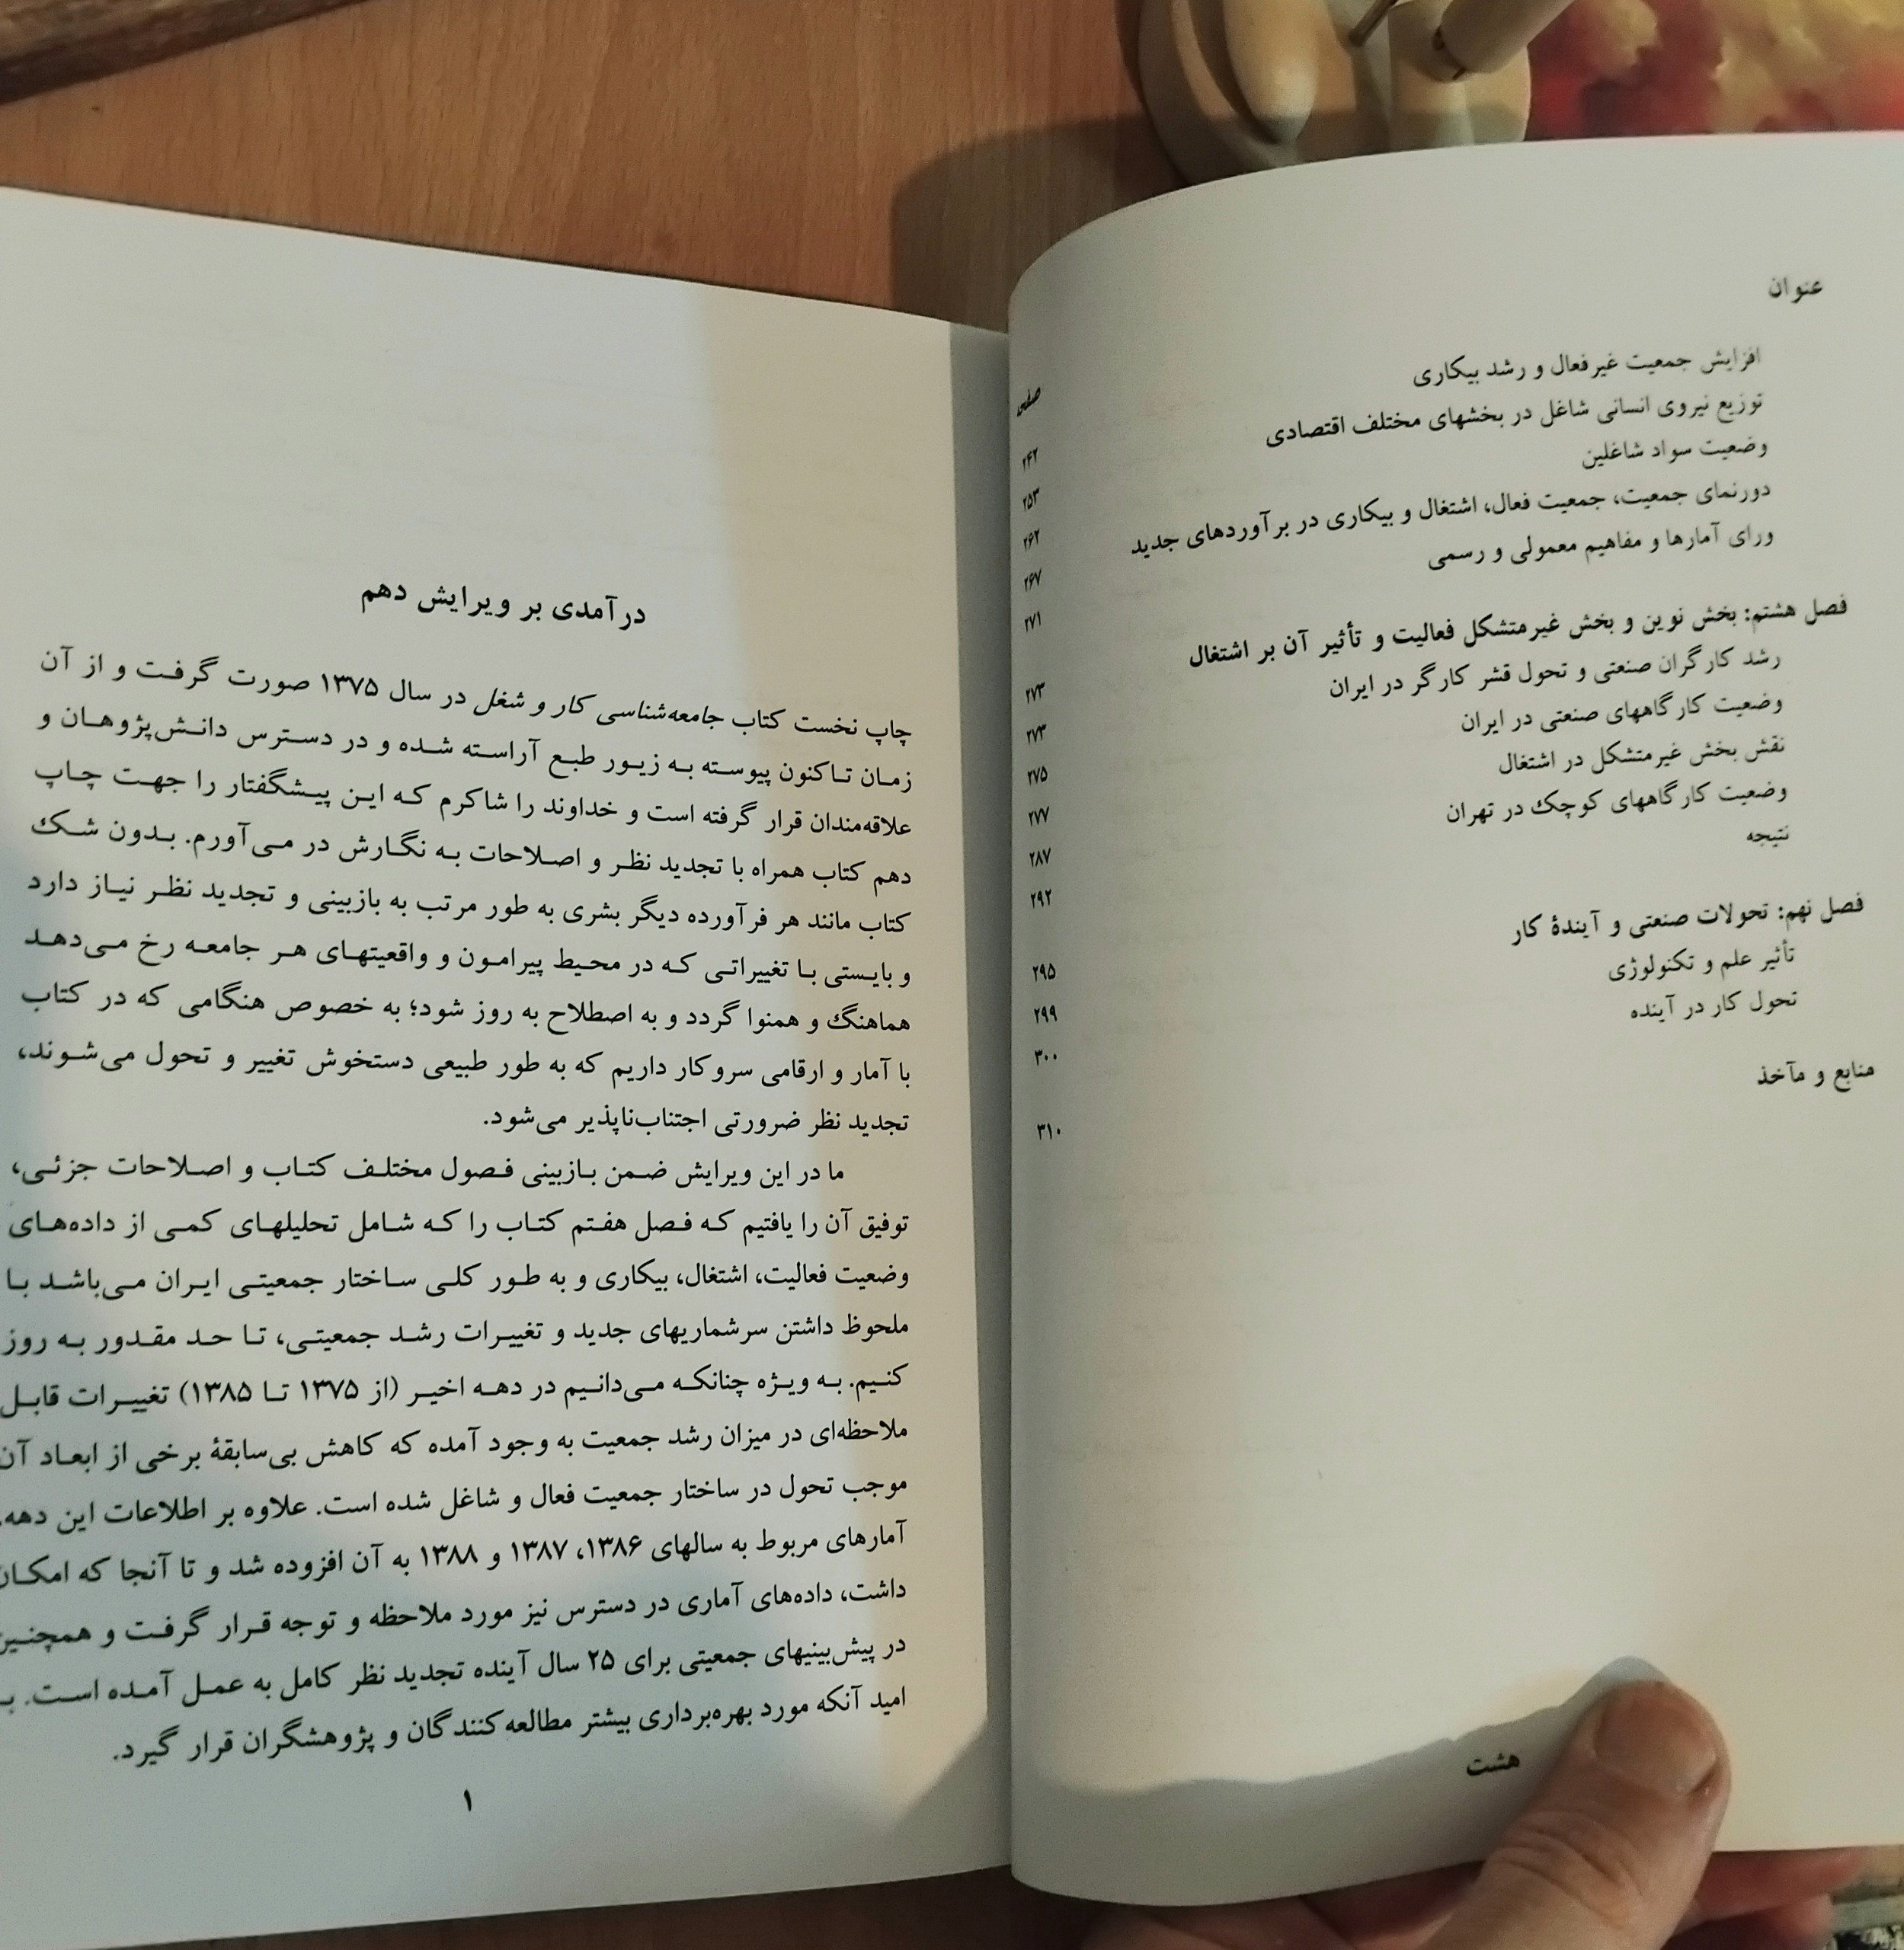 عنوان
صفحه
افزایش جمعیت غیرفعال و رشد بیکاری ۲۴۲
توزیع نیروی انسانی شاغل در بخشهای مختلف اقتصادی ۲۵۳
وضعیت سواد شاغلین ۲۶۲
دورنمای جمعیت، جمعیت فعال، اشتغال و بیکاری در برآوردهای جدید ۲۶۷
ورای آمارها و مفاهیم معمولی و رسمی ۲۷۱
فصل هشتم: بخش نوین و بخش غیرمتشکل فعالیت و تأثیر آن بر اشتغال ۲۷۳
رشد کارگران صنعتی و تحول قشر کارگر در ایران ۲۷۳
وضعیت کارگاههای صنعتی در ایران ۲۷۵
نقش بخش غیرمتشکل در اشتغال ۲۷۷
وضعیت کارگاههای کوچک در تهران ۲۸۷
نتیجه ۲۹۲
فصل نهم: تحولات صنعتی و آیندهٔ کار ۲۹۵
تأثیر علم و تکنولوژی ۲۹۹
تحول کار در آینده ۳۰۰
منابع و مآخذ ۳۱۰
هشت
درآمدی بر ویرایش دهم
چاپ نخست کتاب جامعه‌شناسی کار و شغل در سال ۱۳۷۵ صورت گرفت و از آن
زمان تاکنون پیوسته به زیور طبع آراسته شده و در دسترس دانش‌پژوهان و
علاقه‌مندان قرار گرفته است و خداوند را شاکرم که این پیشگفتار را جهت چاپ
دهم کتاب همراه با تجدید نظر و اصلاحات به نگارش در می‌آورم. بدون شک
کتاب مانند هر فرآورده دیگر بشری به طور مرتب به بازبینی و تجدید نظر نیاز دارد
و بایستی با تغییراتی که در محیط پیرامون و واقعیتهای هر جامعه رخ می‌دهد
هماهنگ و همنوا گردد و به اصطلاح به روز شود؛ به خصوص هنگامی که در کتاب
با آمار و ارقامی سروکار داریم که به طور طبیعی دستخوش تغییر و تحول می‌شوند،
تجدید نظر ضرورتی اجتناب‌ناپذیر می‌شود.
ما در این ویرایش ضمن بازبینی فصول مختلف کتاب و اصلاحات جزئی،
توفیق آن را یافتیم که فصل هفتم کتاب را که شامل تحلیلهای کمی از داده‌های
وضعیت فعالیت، اشتغال، بیکاری و به طور کلی ساختار جمعیتی ایران می‌باشد با
ملحوظ داشتن سرشماریهای جدید و تغییرات رشد جمعیتی، تا حد مقدور به روز
کنیم. به ویژه چنانکه می‌دانیم در دهه اخیر (از ۱۳۷۵ تا ۱۳۸۵) تغییرات قابل
ملاحظه‌ای در میزان رشد جمعیت به وجود آمده که کاهش بی‌سابقهٔ برخی از ابعاد آن
موجب تحول در ساختار جمعیت فعال و شاغل شده است. علاوه بر اطلاعات این دهه،
آمارهای مربوط به سالهای ۱۳۸۶، ۱۳۸۷ و ۱۳۸۸ به آن افزوده شد و تا آنجا که امکان
داشت، داده‌های آماری در دسترس نیز مورد ملاحظه و توجه قرار گرفت و همچنین
در پیش‌بینیهای جمعیتی برای ۲۵ سال آینده تجدید نظر کامل به عمل آمده است.
امید آنکه مورد بهره‌برداری بیشتر مطالعه‌کنندگان و پژوهشگران قرار گیرد.
۱